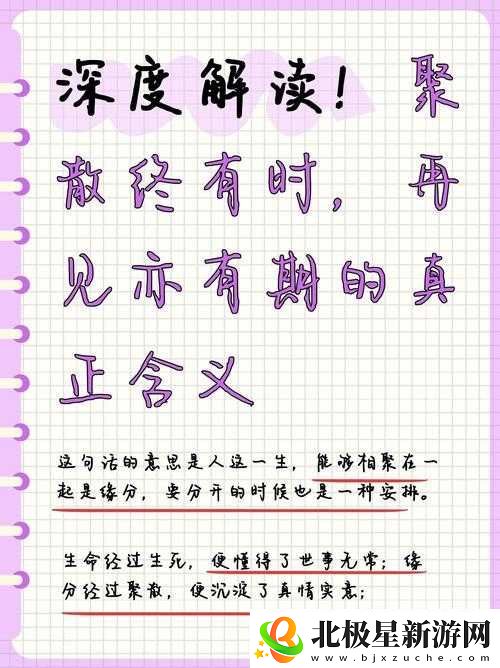 深度解读！聚
散终有时，再
见亦有期的真
正含义
这句话的意思是人这一生，能够相聚在一
起是缘分，要分开的时候也是一种安排。
生命经过生死，便懂得了世事无常；缘
分经过聚散，便沉淀了真情实意；
北极星新游网
www.bjxzuche.com